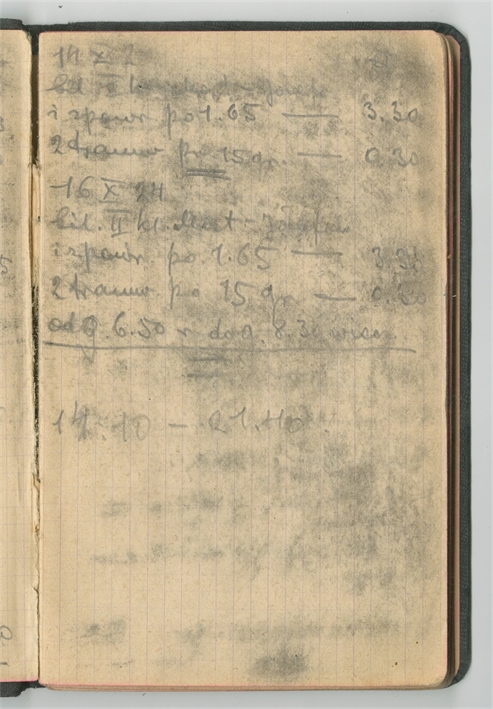 14 X 2
bil. II kl.
i spowr po 1.65 — 3.30
2 tramw po 15 gr. — 0.30
16 X 24
bil. II kl.
i spowr po 1.65 — 3.30
2 tramw po 15 gr — 0.30
od g. 6.50 r do g. 8.30 wiecz.
14.10 — 21.40